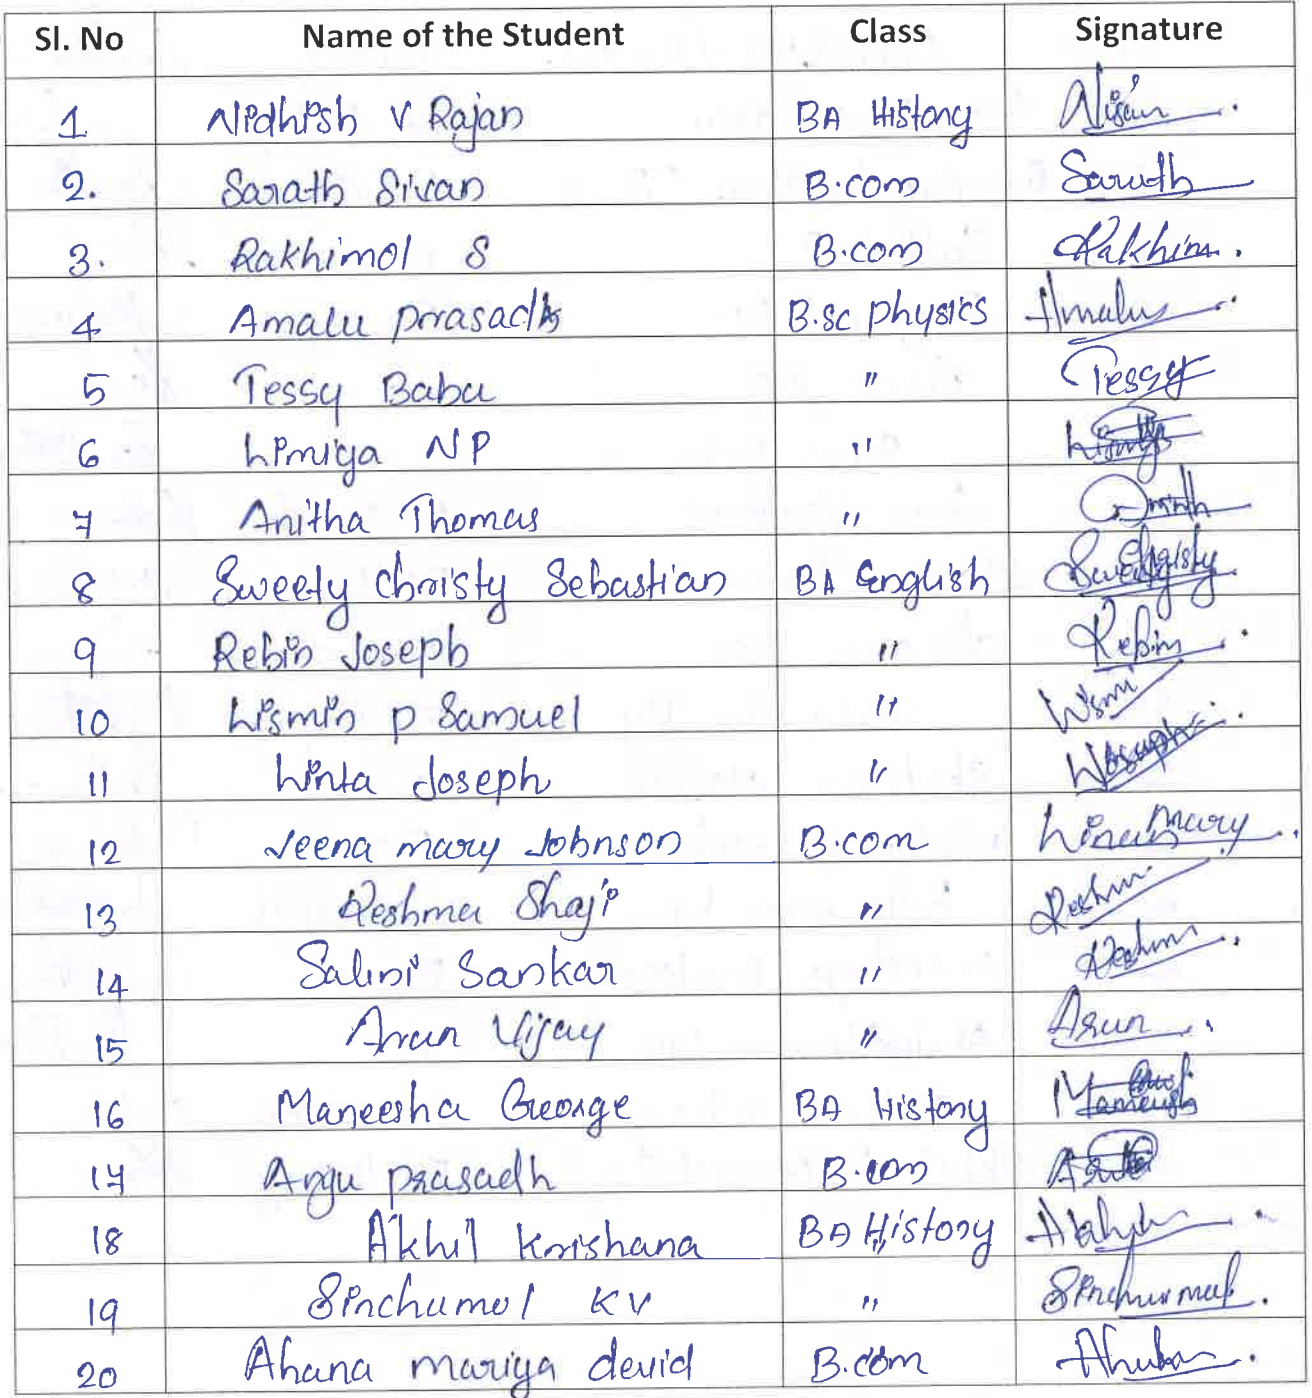 Sl. No Name of the Student Class Signature
1 Nidhish V Rajan BA History
2. Sarath Sivan B.com Sarath
3. Rakhimol S B.com
4 Amalu prrasadh B.sc physics Amalu
5 Tessy Babu " Tessy
6 Limiya NP "
7 Anitha Thomas "
8 Sweety christy Sebastian BA English Sweety Christy
9 Rebin Joseph " Rebin
10 Lismin p Samuel " Lismi
11 Linta Joseph "
12 Jeena mary Johnson B.com mary
13 Reshma Shaji " Reshma
14 Salini Sankar " Reshma
15 Arun Vijay " Arun
16 Maneesha George BA History
17 Anju prasadh B.com
18 Akhil Krishana BA History
19 Sinchumol KV " Sinchumol
20 Ahana mariya devid B.com